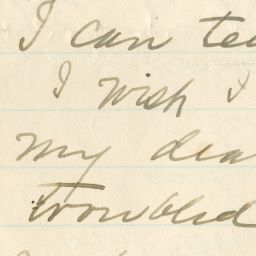 I can te
I wish I
my dea
troubled